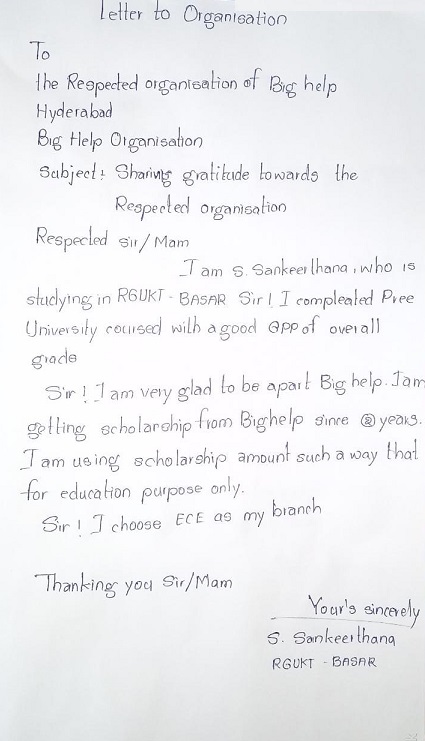 Letter to Organisation
To
the Respected organisation of Big help
Hyderabad
Big Help Organisation
Subject: Sharing gratitude towards the
Respected organisation
Respected Sir/Mam
I am S. Sankeerthana, who is
studying in RGUKT - BASAR Sir! I compleated Pree
University coursed with a good GPP of overall
grade
Sir! I am very glad to be apart Big help. I am
getting scholarship from Bighelp since ② years.
I am using scholarship amount such a way that
for education purpose only.
Sir! I choose ECE as my branch
Thanking you Sir/Mam
Your's sincerely
S. Sankeerthana
RGUKT - BASAR